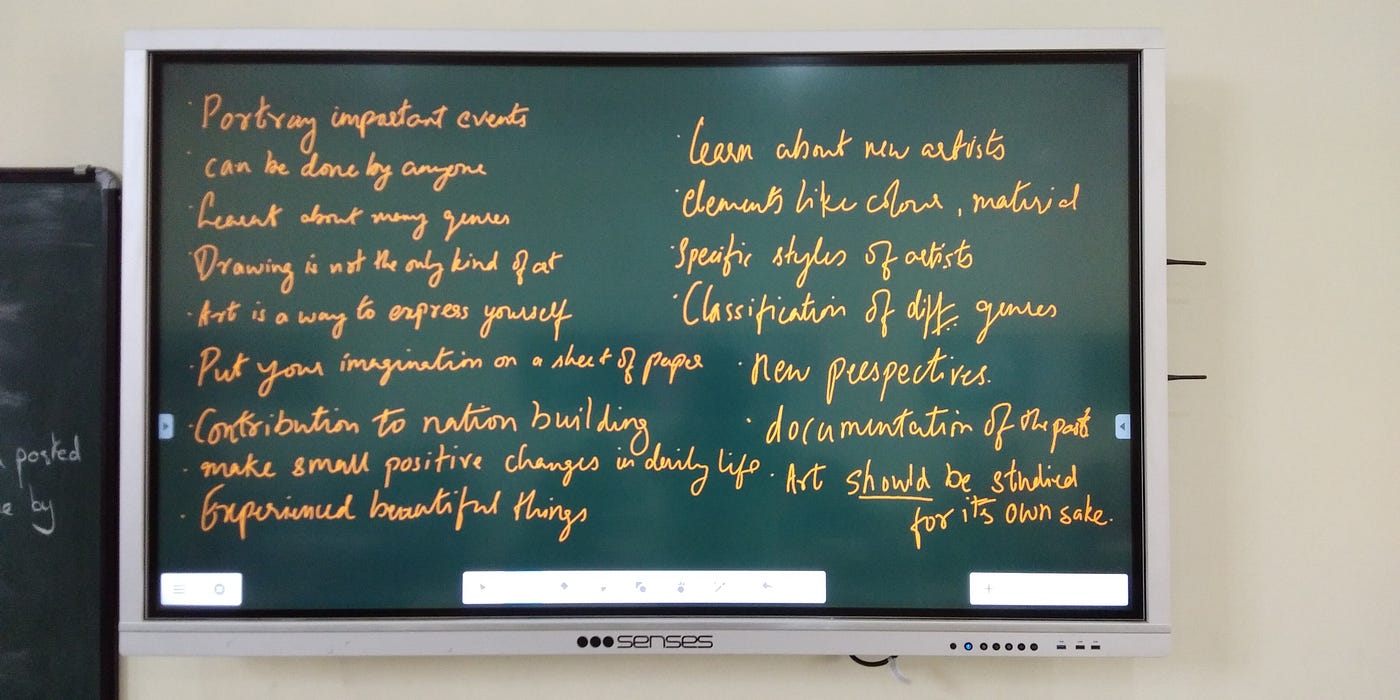 · Portray important events
· can be done by anyone
· Learnt about many genres
· Drawing is not the only kind of art
· Art is a way to express yourself
· Put your imagination on a sheet of paper
· Contribution to nation building
· make small positive changes in daily life
· Experienced beautiful things
· learn about new artists
· elements like colour, material
· Specific styles of artists
· Classification of diff. genres
· new perspectives.
· documentation of the past
· Art should be studied
for its own sake.
posted
by
senses